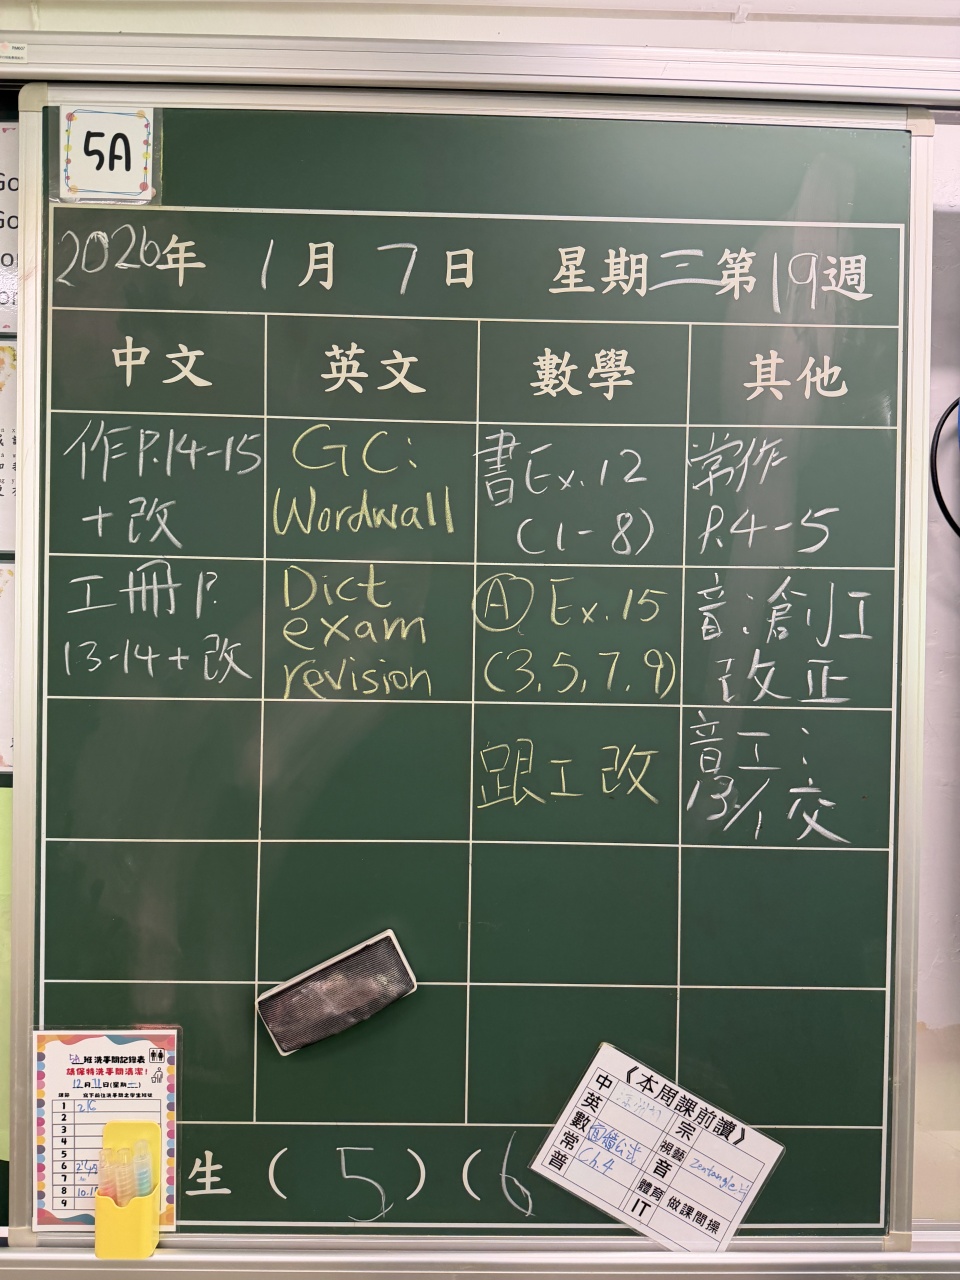 5A
2026年 1月 7日 星期三 第19週
中文 英文 數學 其他
作P.14-15
+改
GC:
Wordwall
書Ex.12
(1-8)
常作
P.4-5
工冊P.
13-14+改
Dict
exam
revision
Ⓐ Ex.15
(3,5,7,9)
音:創工
改正
跟工改
音工:
13/1交
生 ( 5 ) ( 6
5A 班洗手間記錄表
請保持洗手間清潔!
12月31日(星期三)
1
2
3
4
5
6
7
8
9
《本周課前讀》
中
英
數
常 Ch.4
普
宗
視藝 Zentangle
音
體育 做課間操
IT